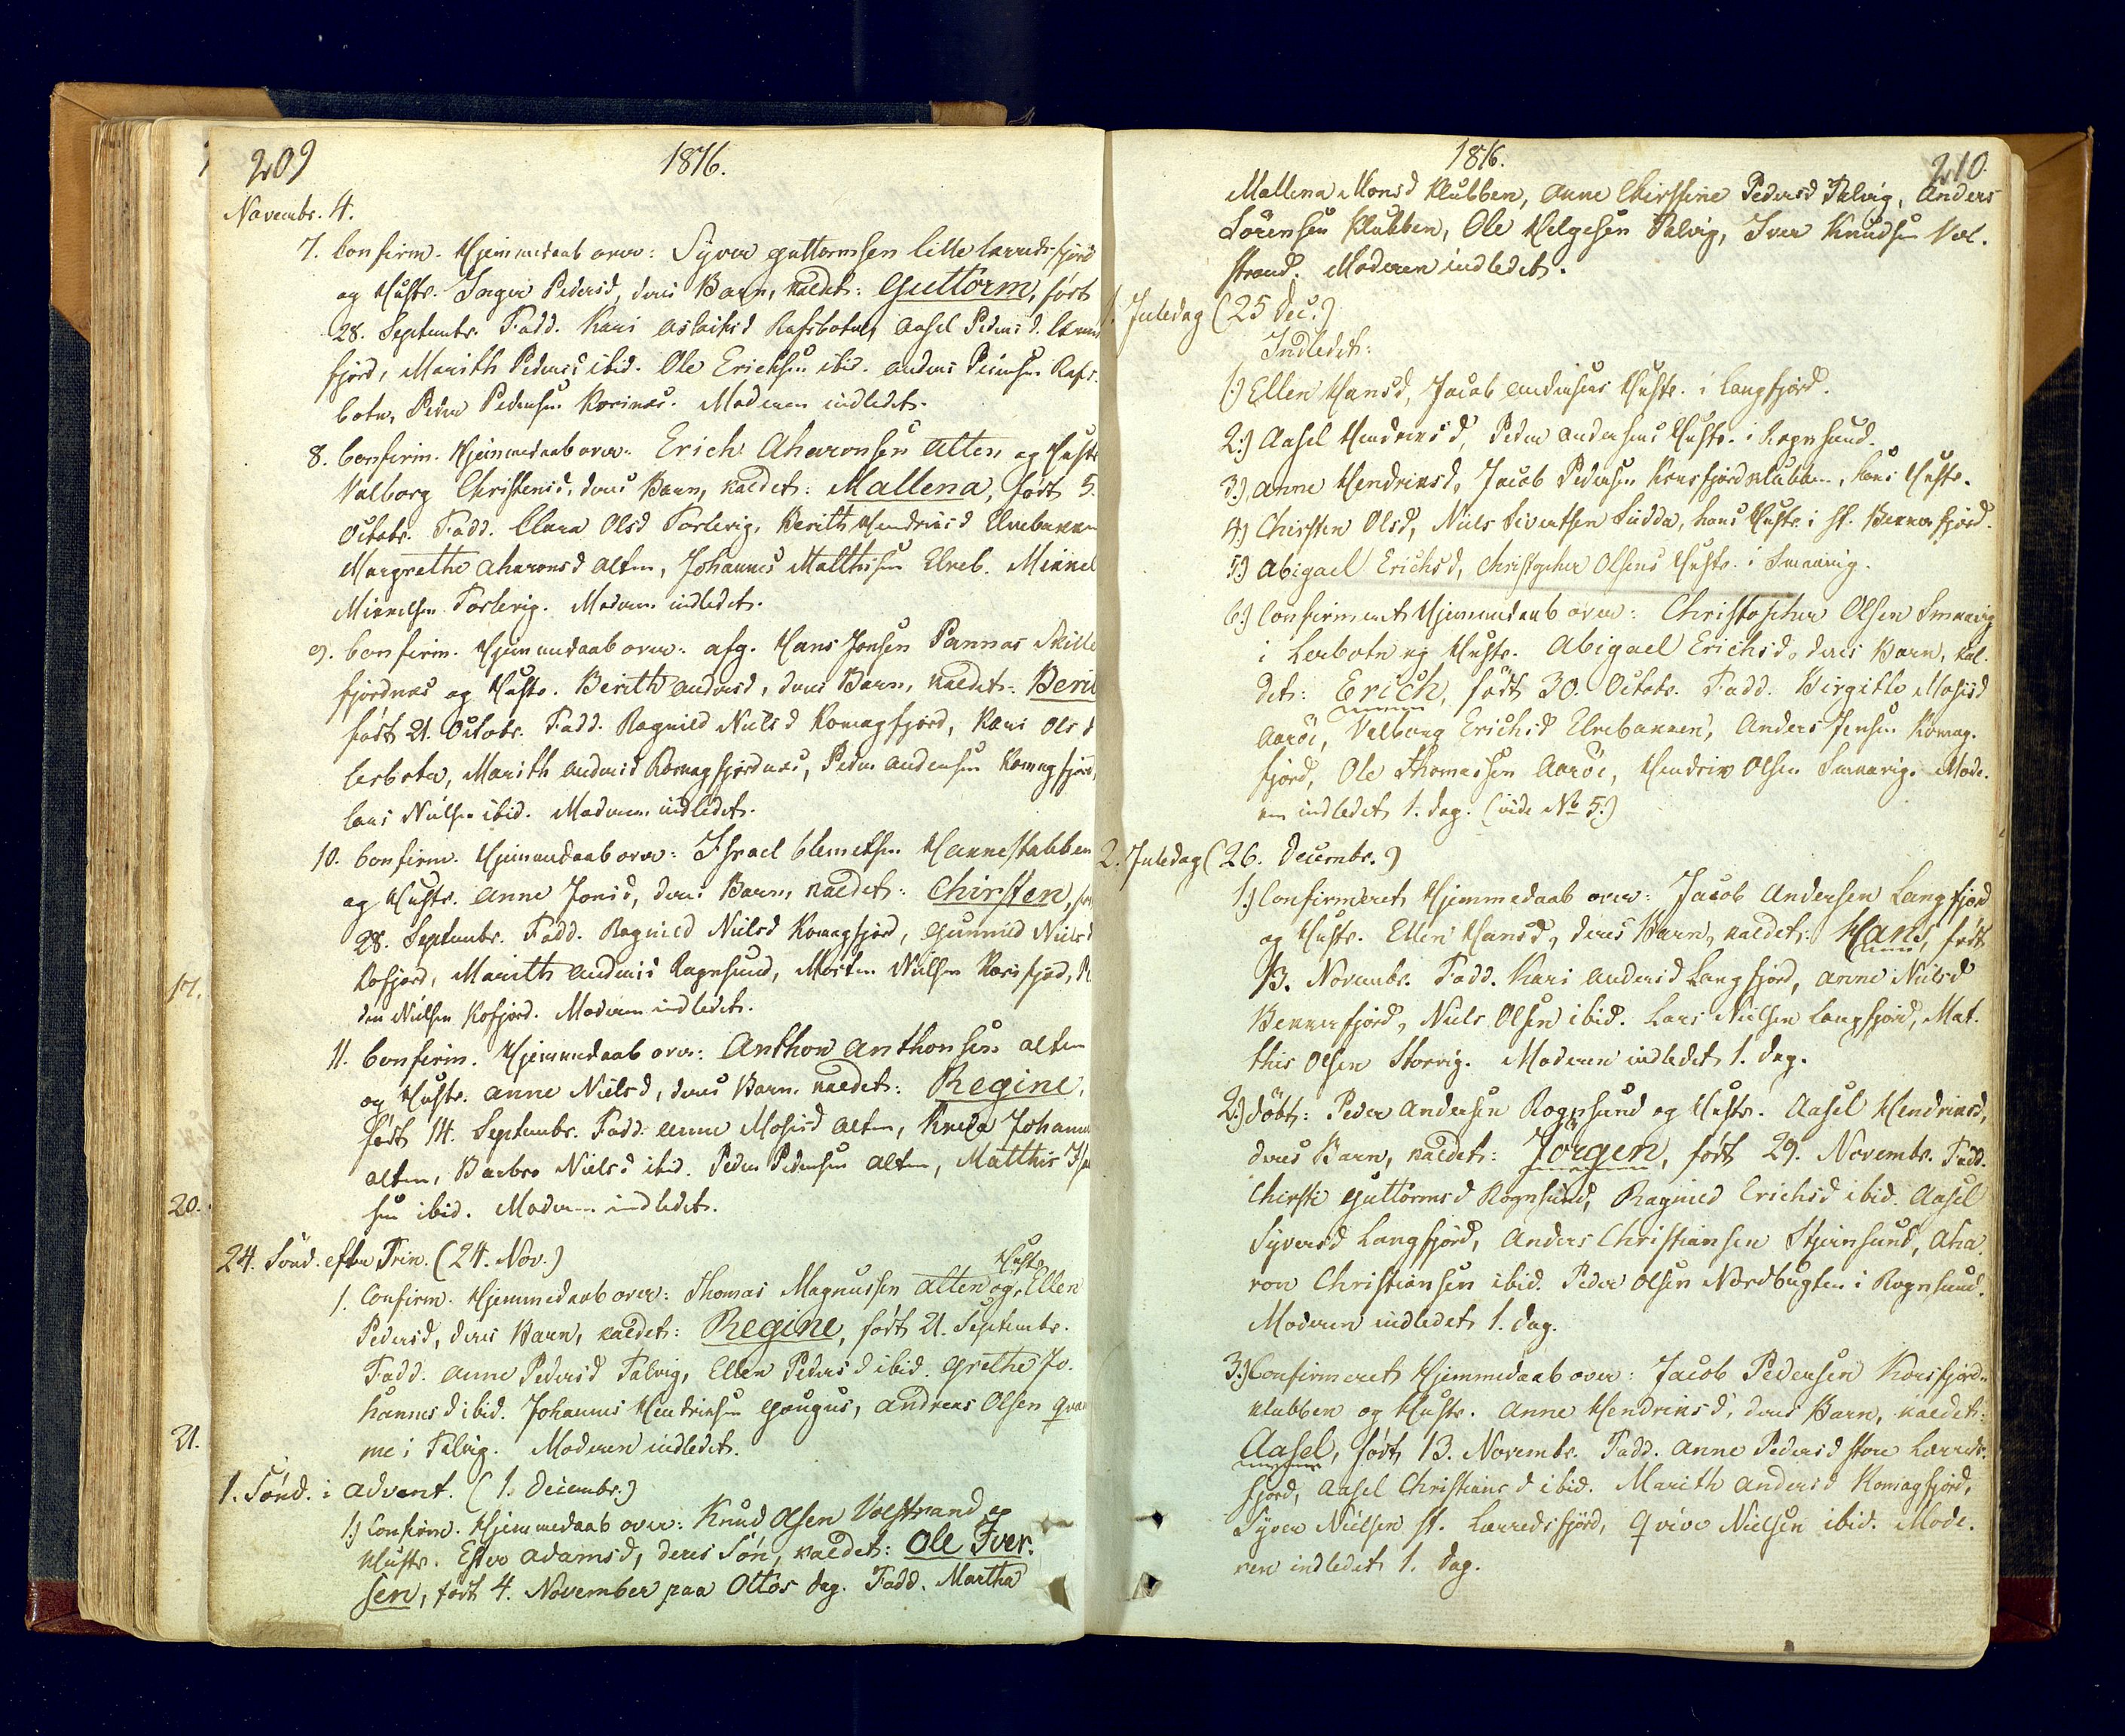 209
1816.
Novembr. 4.
7. Confirm. Hjemmedaab over: Syver Guttormsen lille Lerreds fjord
og Hustr. Inger Pedersd, deres Barn, kaldet: Guttorm, født
28. Septembr. Fadd. Kari Aslachsd Rafsbotn, Aasel Pedersd.
fjord, Marith Pedersd ibid. Ole Erichsen ibid. Anders Peersen Rafs-
botn, Peder Pedersen Korsnes. Moderen indledet.
8. Confirm. Hjemmedaab over: Erich Aharonsen Alten og Hustr
Valborg Christensd, deres Barn, kaldet: Mallena, født 5.
Octobr. Fadd. Clara Olsd Toslevig, Berith Hendriksd Elvebakken
Margrethe Aharonsd Alten, Johannes Matthisen Elveb. Mikkel
Mikkelsen Toslevig. Moderen indledet.
9. Confirm. Hjemmedaab over: afg. Hans Jonsen Pannas Skille
fjordnes og Hustr. Berith Andersd, deres Barn, kaldet: Berit
født 21. Octobr. Fadd. Ragnild Nielsd Komagfjord, Kari Olsd
Lerbotn, Marith Andersd Komagfjordnes, Peder Andersen Komagfjord,
Lars Nielsen ibid. Moderen indledet.
10. Confirm. Hjemmedaab over: Israel Clemetsen Hannestabben
og Hustr. Anne Jonsd, deres Barn, kaldet: Chirsten,
28. Septembr. Fadd. Ragnild Nielsd Komagfjord, Gunnild Nielsd
Kofjord, Marith Andersd Rognsund, Morten Nielsen Korsfjord,
den Nielsen Kofjord. Moderen indledet.
17.
11. Confirm. Hjemmedaab over: Anthon Anthonsen Alten
og Hustr. Anne Nielsd, deres Barn kaldet: Regine,
født 14. Septembr. Fadd. Anne Mosisd Alten, Johann
Alten, Barbro Nielsd ibid. Peder Pedersen Alten, Matthis
sen ibid. Moderen indledet.
20.
24. Sönd. efter Trin. (24. Nov.)
Hustr.
1. Confirm. Hjemmedaab over: Thomas Magnussen Alten og Ellen
Pedersd, deres Barn, kaldet: Regine, født 21. Septembr.
Fadd. Anne Pedersd Talvig, Ellen Pedersd ibid. Grethe Jo-
hannesd ibid. Johannes Hendriksen, Andreas Olsen
me i Talvig. Moderen indledet.
21.
1. Sönd. i Advent. (1. Decembr.)
1.) Confirm. Hjemmedaab over: Knud Olsen Volstrand og
Hustr. Ester Adamsd, deres Søn, kaldet: Ole Iver-
sen, født 4. November paa Ottos dag. Fadd. Martha
1816.
210.
Mallena Monsd Klubben, Anne Chirstine Pedersd Talvig, Anders
Sörensen Klubben, Ole Helgesen Talvig, Iver Knudsen Vol-
strand. Moderen indledet.
1. Juledag (25 Dec.)
Indledet:
1.) Ellen Hansd, Jacob Andersens Hustr. i Langfjord.
2.) Aasel Hendriksd, Peder Andersens Hustr. i Rognsund.
3.) Anne Hendriksd, Jacob Pedersen Korsfjordklubben, hans Hustr.
4.) Chirsten Olsd, Niels Sivertsen Sudda, hans Hustr. i St. Bekkerfjord.
5.) Abigael Erichsd, Christopher Olsens Hustr. i Smaavig.
6.) Confirmeret Hjemmedaab over: Christopher Olsen Smaavig
i Lerbotn og Hustr. Abigael Erichsd, deres Barn, kal-
det: Erich, født 30. Octobr. Fadd. Birgitte Mosisd
Aaröe, Valborg Erichsd Elvebakken, Anders Jensen Komag-
fjord, Ole Thomassen Aaröe, Hendrik Olsen Smaavig. Mode-
ren indledet 1. dag. (vide No 5.)
2. Juledag (26. Decembr.)
1.) Confirmeret Hjemmedaab over: Jacob Andersen Langfjord
og Hustr. Ellen Hansd, deres Barn, kaldet: Hans, født
13. Novembr. Fadd. Kari Andersd Langfjord, Anne Nielsd
Bekkerfjord, Niels Olsen ibid. Lars Nielsen Langfjord, Mat-
this Olsen Storvig. Moderen indledet 1. dag.
2.) döbt: Peder Andersen Rognsund og Hustr. Aasel Hendriksd,
deres Barn, kaldet: Jörgen, født 29. Novembr. Fadd.
Chirsti Guttormsd Rognsund, Ragnild Erichsd ibid. Aasel
Syversd Langfjord, Anders Christiansen Stjernsund, Aha-
ron Christiansen ibid. Peder Olsen Nordbugten i Rognsund.
Moderen indledet 1. dag.
3.) Confirmeret Hjemmedaab over: Jacob Pedersen Korsfjord-
klubben og Hustr. Anne Hendriksd, deres Barn, kaldet:
Aasel, født 13. Novembr. Fadd. Anne Pedersd store Lerreds-
fjord, Aasel Christiansd ibid. Marith Andersd Komagfjord,
Syver Nielsen St. Lerredsfjord, Qvive Nielsen ibid. Mode-
ren indledet 1. dag.